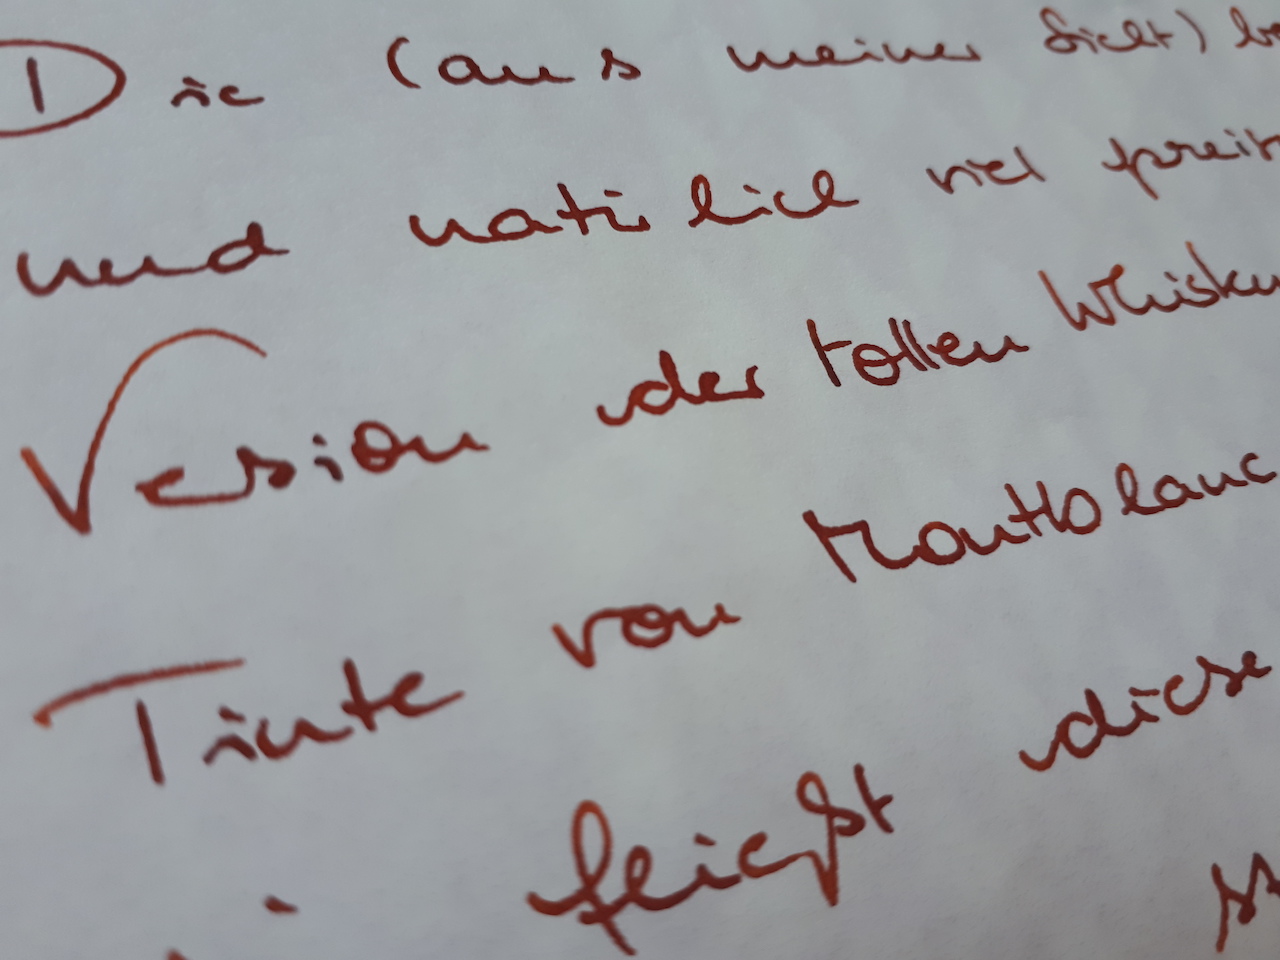 Die (aus meiner Sicht) be
und natürlich viel prei
Version der tollen Whisky
Tinte von Montblanc
fließt diese